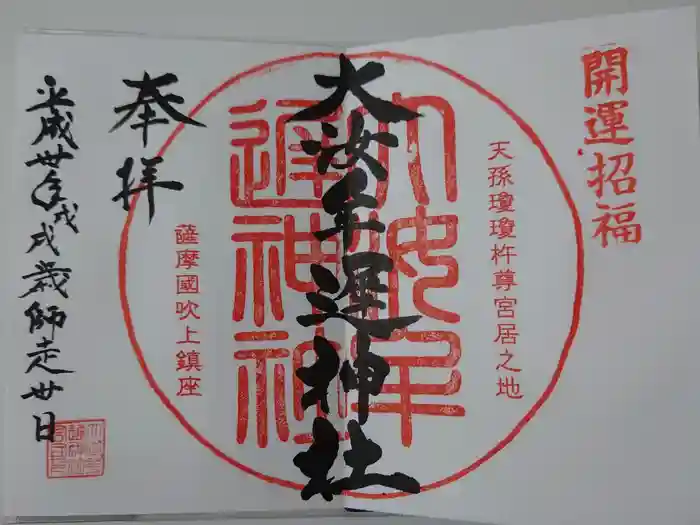 開運招福
天孫瓊瓊杵尊宮居之地
大汝牟遅神社
大汝牟遅神社
薩摩國吹上鎮座
奉拝
平成卅年戊戌歳師走廿日